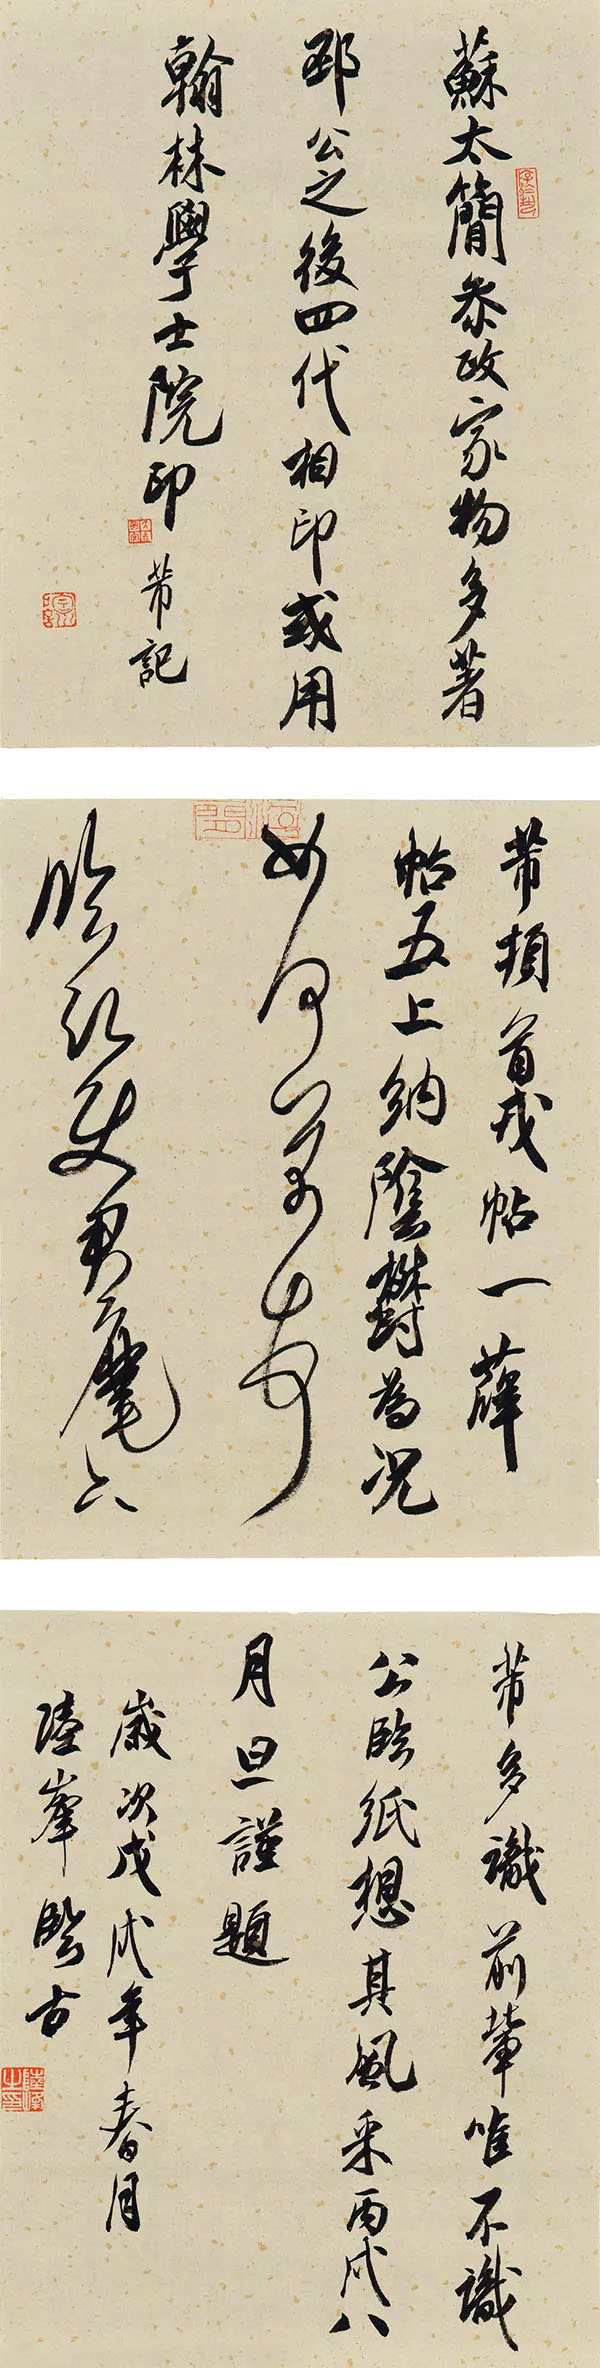 蘇太簡參政家物多著
邳公之後四代相印或用
翰林學士院印 芾記
芾頓首戎帖一薛
帖五上納陰鬱為況
如何芾頓首
臨江使君麾下
芾多識前輩唯不識
公臨紙想其風采丙戌八
月旦謹題
歲次戊戌年春月
陸峯臨古